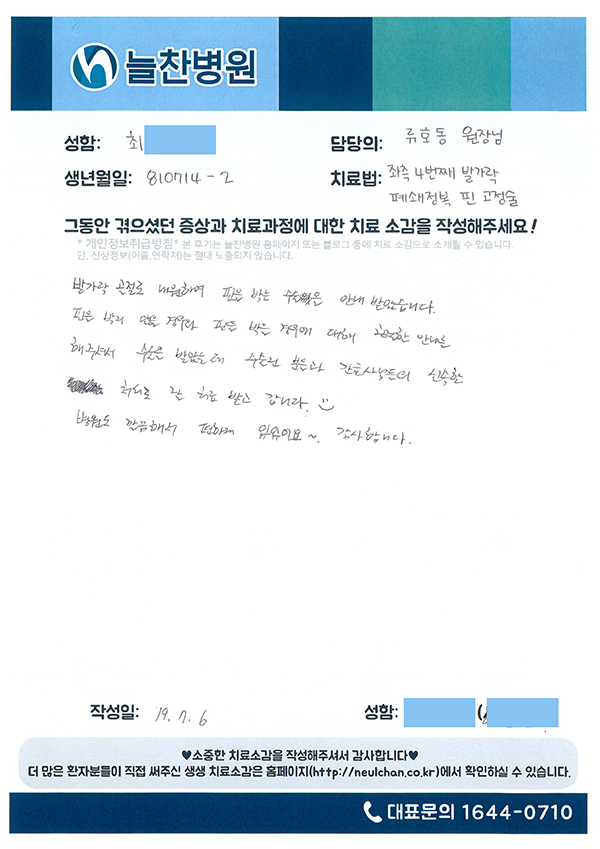 늘찬병원
성함: 최
담당의: 류호동 원장님
생년월일: 810714-2
치료법: 좌측 4번째 발가락
폐쇄정복 핀 고정술
그동안 겪으셨던 증상과 치료과정에 대한 치료 소감을 작성해주세요!
* 개인정보취급방침* 본 후기는 늘찬병원 홈페이지 또는 블로그 등에 치료 소감으로 소개될 수 있습니다.
단, 신상정보(이름,연락처)는 절대 노출되지 않습니다.
발가락 골절로 내원하여 핀을 박는 수술을 안내 받았습니다.
핀을 박지 않을 경우와 핀을 박을 경우에 대해 안내를
해주셔서 수술을 받았는데 수술한 분들과 간호사님들의 신속한
처치로 잘 치료 받고 갑니다.
병원도 깔끔해서 편하게 있었어요~. 감사합니다.
작성일: 19. 7. 6
성함: (
♥소중한 치료소감을 작성해주셔서 감사합니다♥
더 많은 환자분들이 직접 써주신 생생 치료소감은 홈페이지(http://neulchan.co.kr)에서 확인하실 수 있습니다.
대표문의 1644-0710